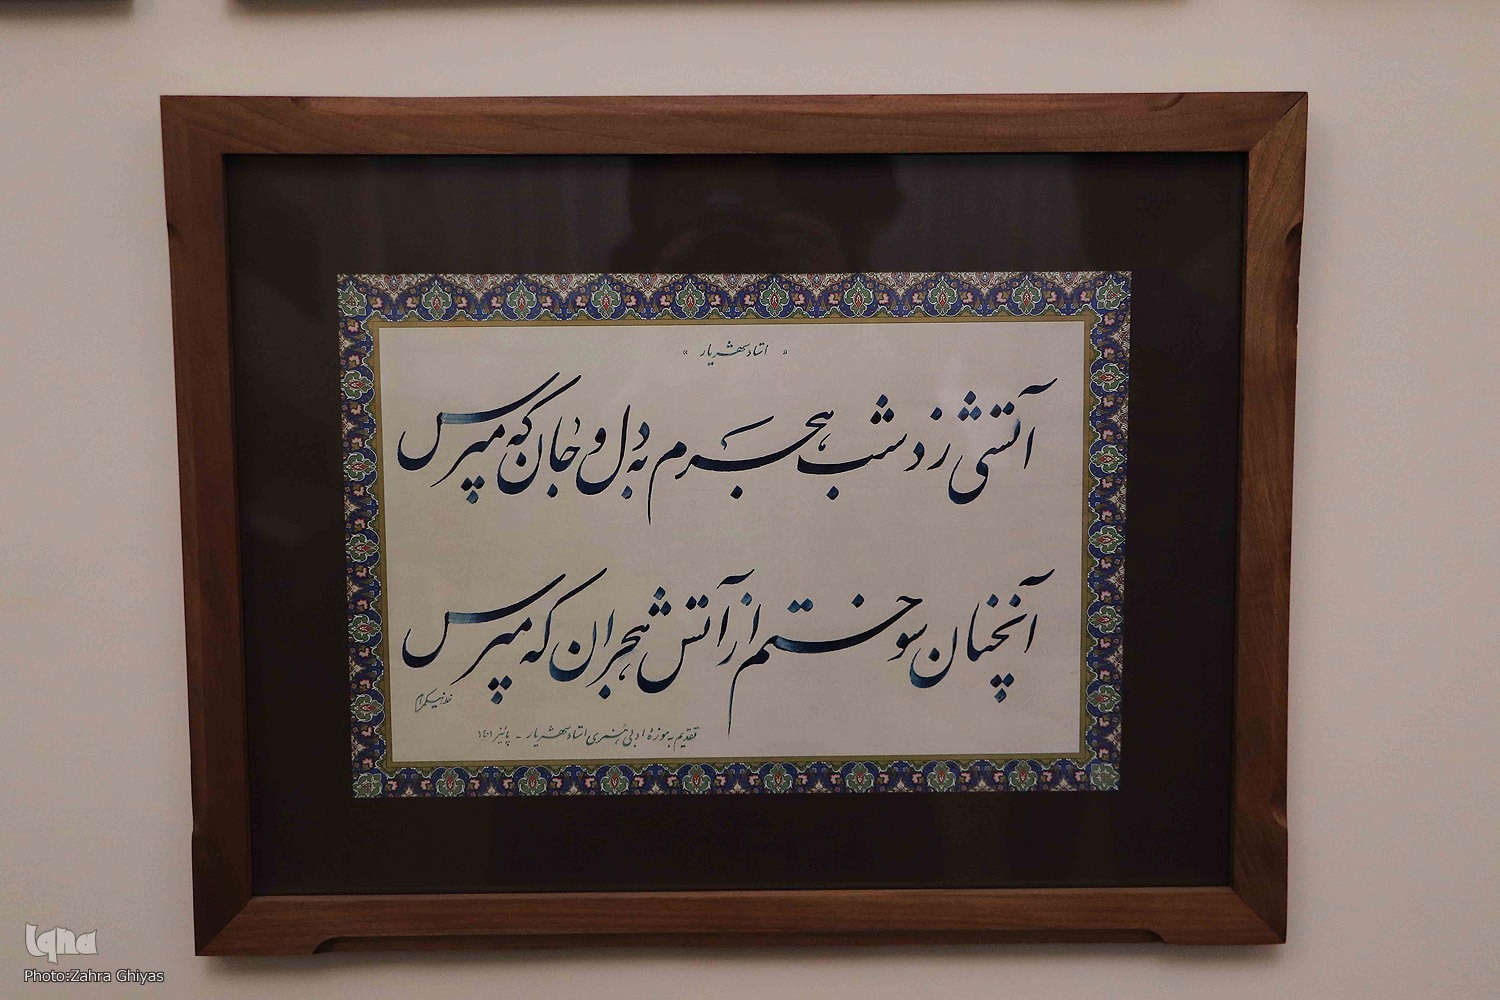 « استاد شهریار »
آتشی زد شب هجرم به دل و جان که مپرس
آنچنان سوختم از آتش هجران که مپرس
تقدیم به موزه ادبی هنری استاد شهریار - پائیز ۱۴۰۱
Iqna
Photo:Zahra Ghiyas